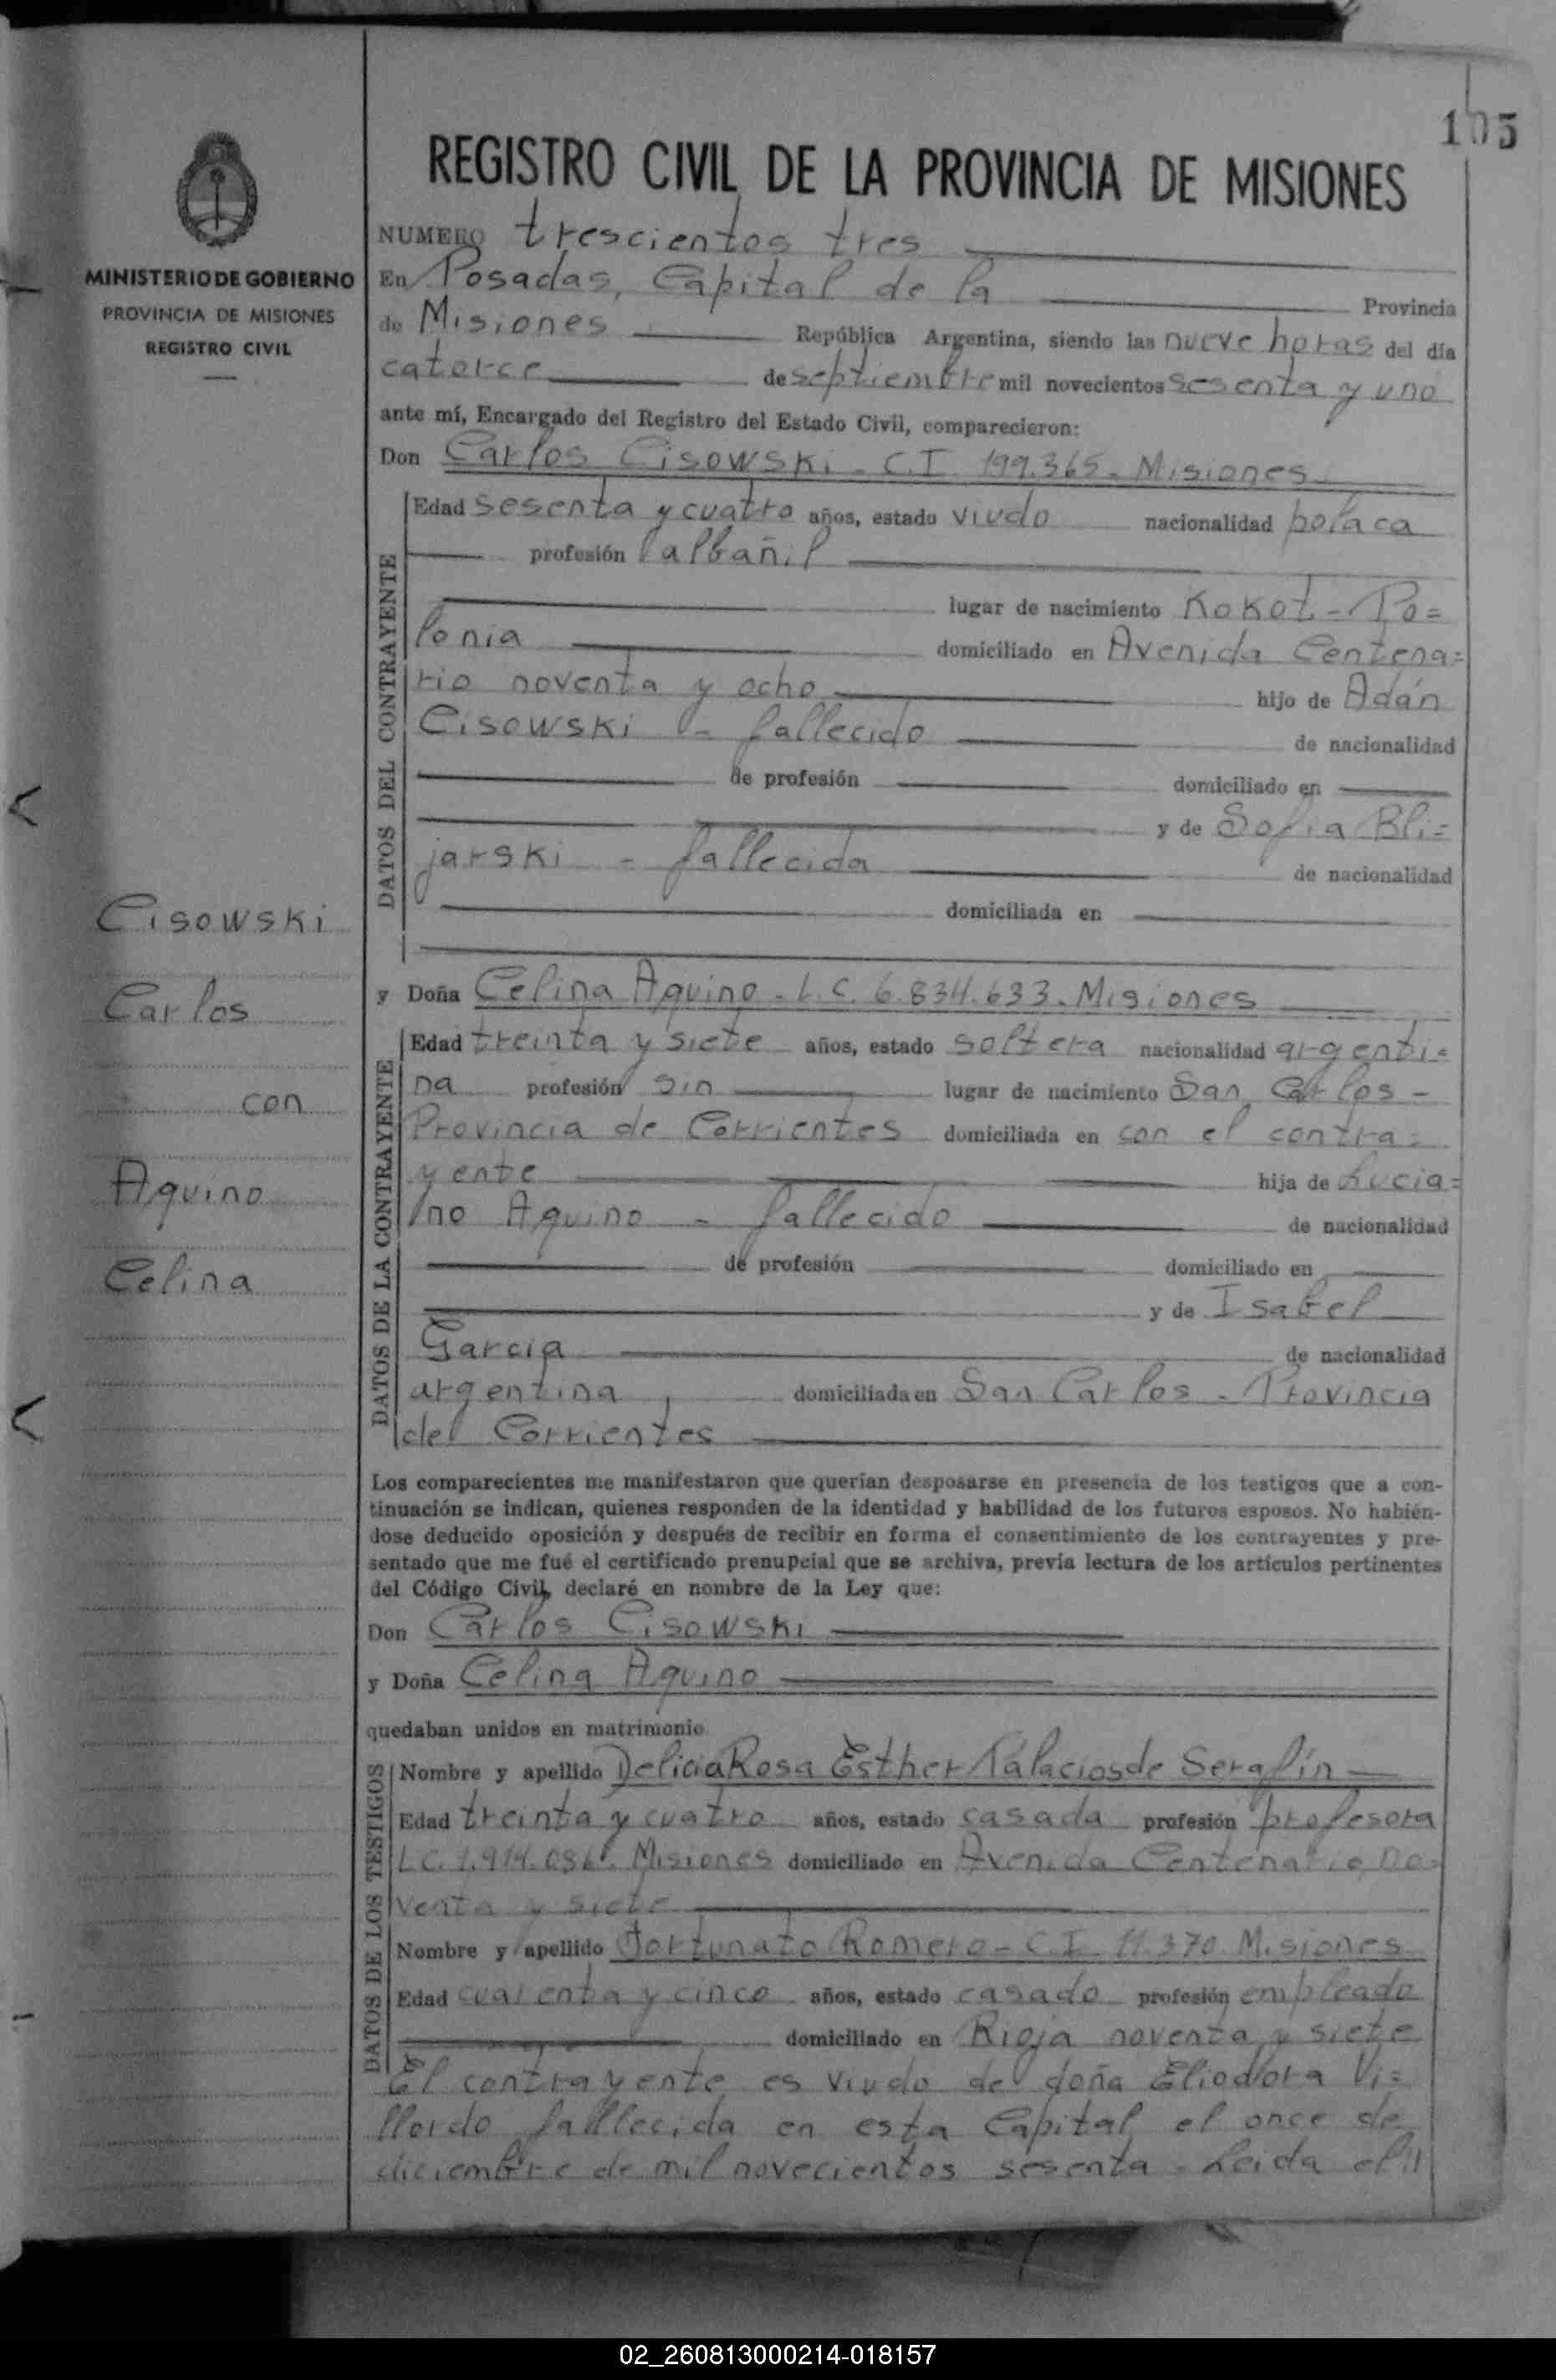 105
REGISTRO CIVIL DE LA PROVINCIA DE MISIONES
MINISTERIO DE GOBIERNO
PROVINCIA DE MISIONES
REGISTRO CIVIL
NUMERO trescientos tres
En Posadas, Capital de la Provincia
de Misiones República Argentina, siendo las nueve horas del día
catorce de septiembre mil novecientos sesenta y uno
ante mí, Encargado del Registro del Estado Civil, comparecieron:
Don Carlos Cisowski - C.I. 199.365 - Misiones
DATOS DEL CONTRAYENTE
Edad sesenta y cuatro años, estado viudo nacionalidad polaca
profesión albañil
lugar de nacimiento Kokot - Po=
lonia domiciliado en Avenida Centena=
rio noventa y ocho hijo de Adán
Cisowski - fallecido de nacionalidad
de profesión domiciliado en
y de Sofia Bli=
jarski - fallecida de nacionalidad
domiciliada en
Cisowski
Carlos
con
Aquino
Celina
y Doña Celina Aquino - L.C. 6.834.633. Misiones
DATOS DE LA CONTRAYENTE
Edad treinta y siete años, estado soltera nacionalidad argenti=
na profesión sin lugar de nacimiento San Carlos -
Provincia de Corrientes domiciliada en con el contra=
yente hija de Lucia=
no Aquino - fallecido de nacionalidad
de profesión domiciliado en
y de Isabel
Garcia de nacionalidad
argentina domiciliada en San Carlos - Provincia
de Corrientes
Los comparecientes me manifestaron que querían desposarse en presencia de los testigos que a con-
tinuación se indican, quienes responden de la identidad y habilidad de los futuros esposos. No habién-
dose deducido oposición y después de recibir en forma el consentimiento de los contrayentes y pre-
sentado que me fué el certificado prenupcial que se archiva, previa lectura de los artículos pertinentes
del Código Civil, declaré en nombre de la Ley que:
Don Carlos Cisowski
y Doña Celina Aquino
quedaban unidos en matrimonio
DATOS DE LOS TESTIGOS
Nombre y apellido Delicia Rosa Esther Palacios de Serafín
Edad treinta y cuatro años, estado casada profesión profesora
L.C. Misiones domiciliado en Avenida Centenario no=
venta y siete
Nombre y apellido Fortunato Romero - C.I. 11.370 Misiones
Edad cuarenta y cinco años, estado casado profesión empleado
domiciliado en Rioja noventa y siete
El contrayente es viudo de doña Eliodora Vi=
llordo fallecida en esta Capital el once de
diciembre de mil novecientos sesenta. Leida el
02_260813000214-018157